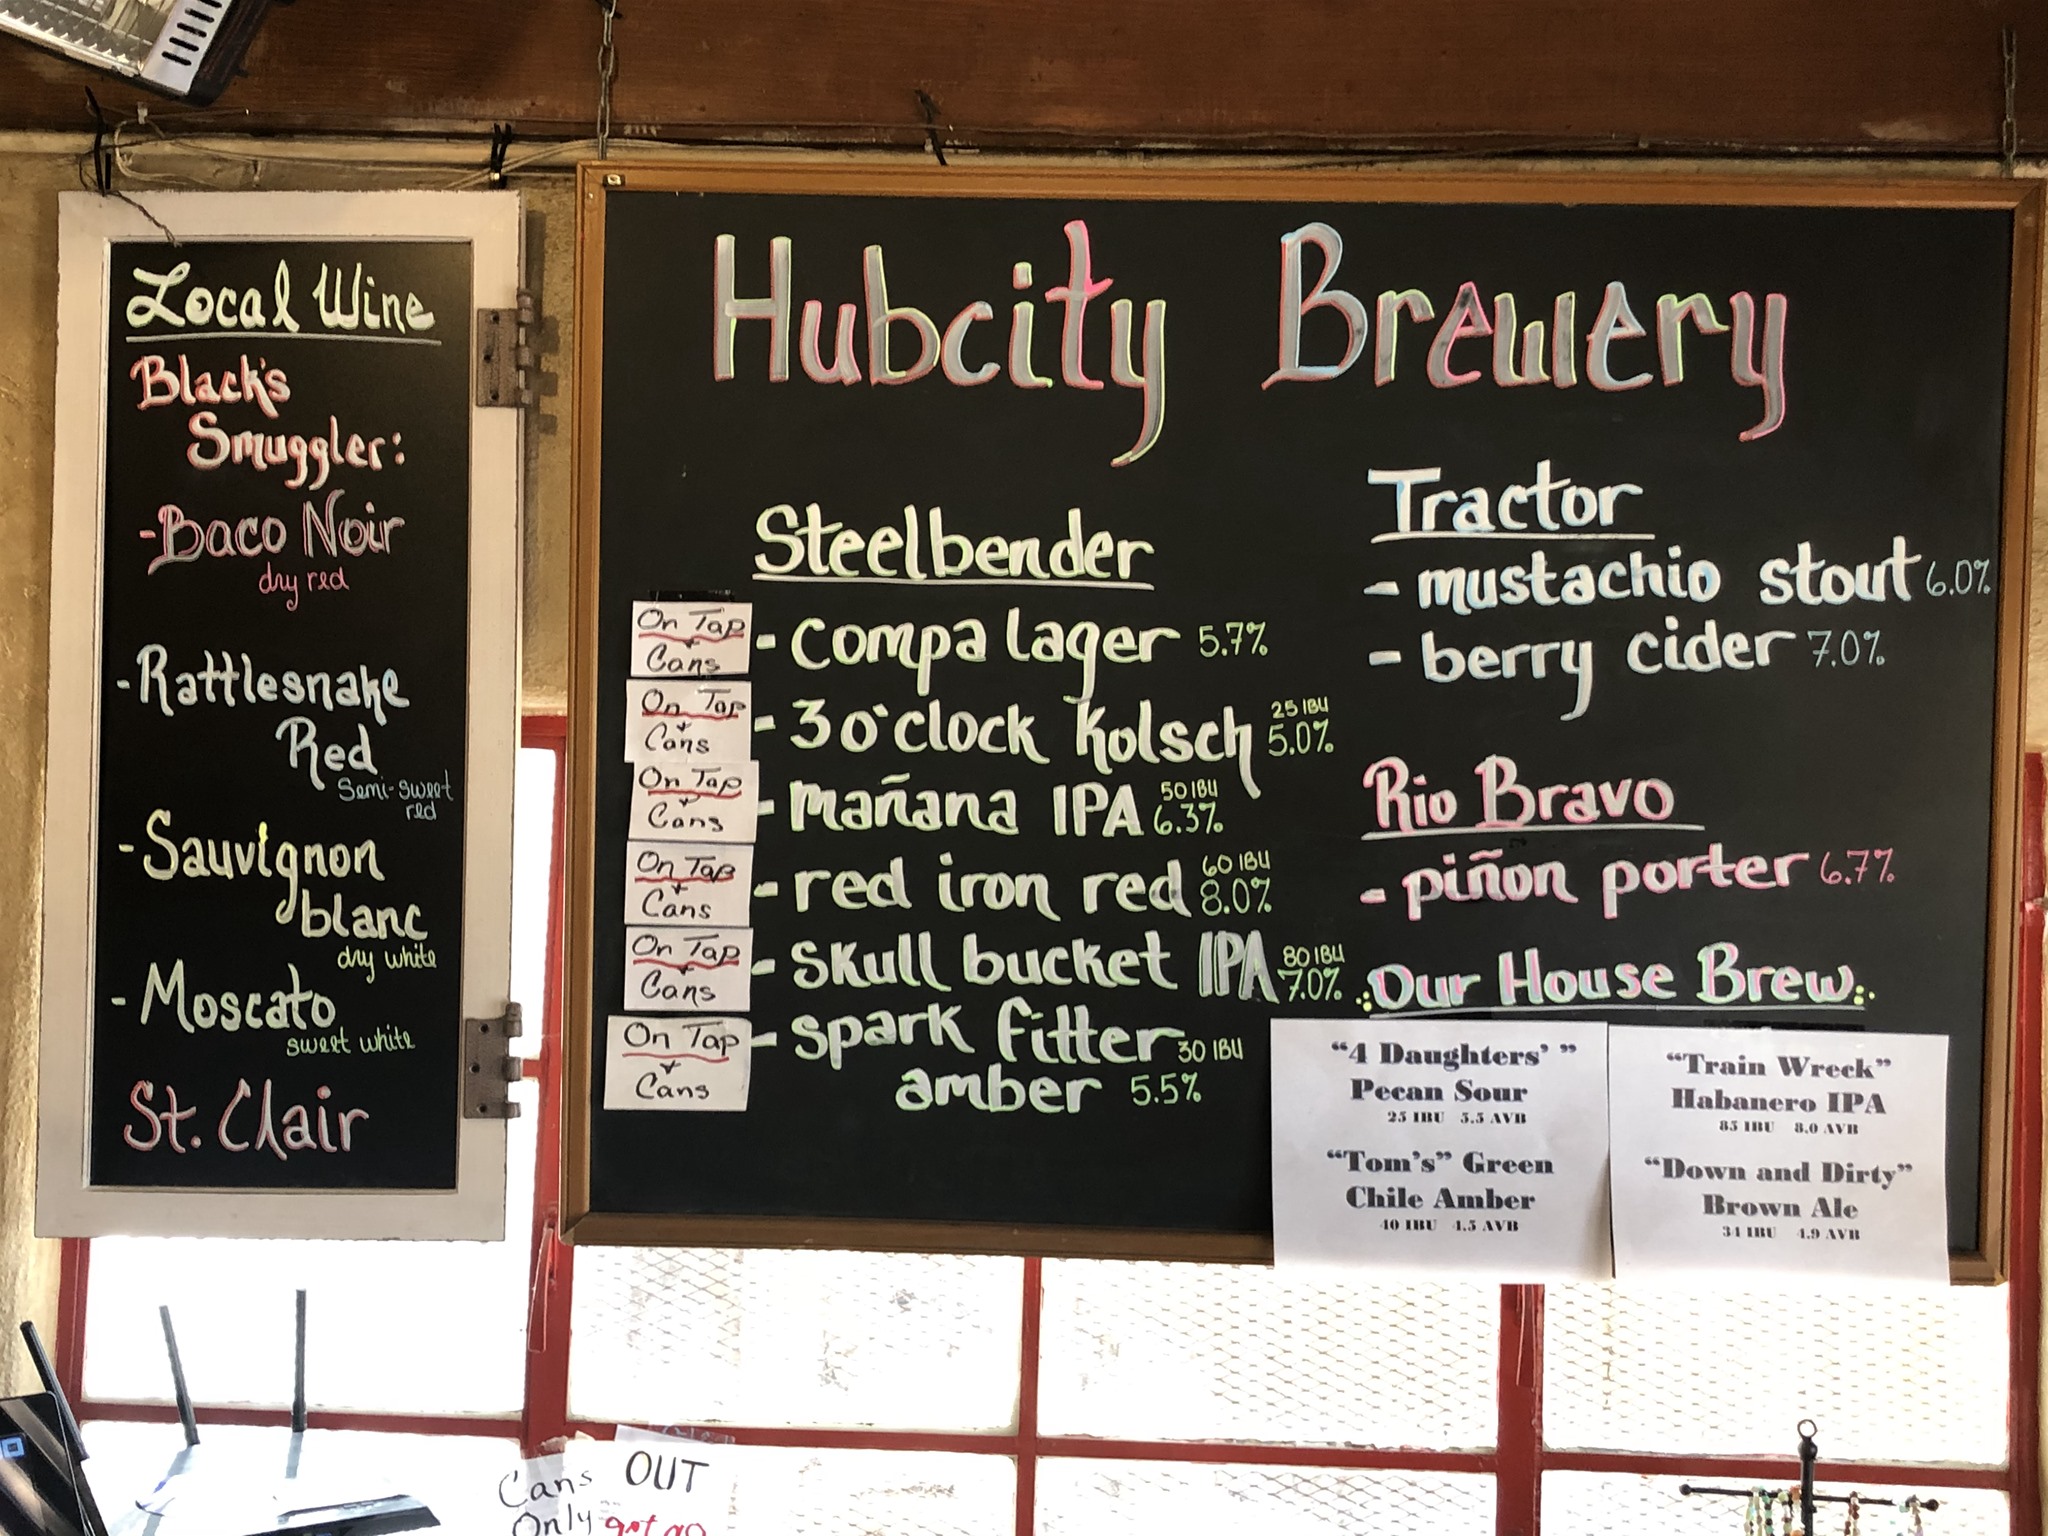 Local Wine
Black's
Smuggler:
-Baco Noir
dry red
-Rattlesnake
Red
Semi-sweet
red
-Sauvignon
blanc
dry white
-Moscato
sweet white
St. Clair
Hubcity Brewery
Steelbender
On Tap
+
Cans
- compa lager 5.7%
On Tap
+
Cans
- 3 o'clock Kolsch 25 IBU
5.0%
On Tap
+
Cans
- mañana IPA 50 IBU
6.3%
On Tap
+
Cans
- red iron red 60 IBU
8.0%
On Tap
+
Cans
- skull bucket IPA 80 IBU
7.0%
On Tap
+
Cans
- spark fitter 30 IBU
amber 5.5%
Tractor
- mustachio stout 6.0%
- berry cider 7.0%
Rio Bravo
- piñon porter 6.7%
Our House Brew
"4 Daughters' "
Pecan Sour
25 IBU 5.5 AVB
"Tom's" Green
Chile Amber
40 IBU 4.5 AVB
"Train Wreck"
Habanero IPA
85 IBU 8.0 AVB
"Down and Dirty"
Brown Ale
34 IBU 4.9 AVB
Cans OUT
Only